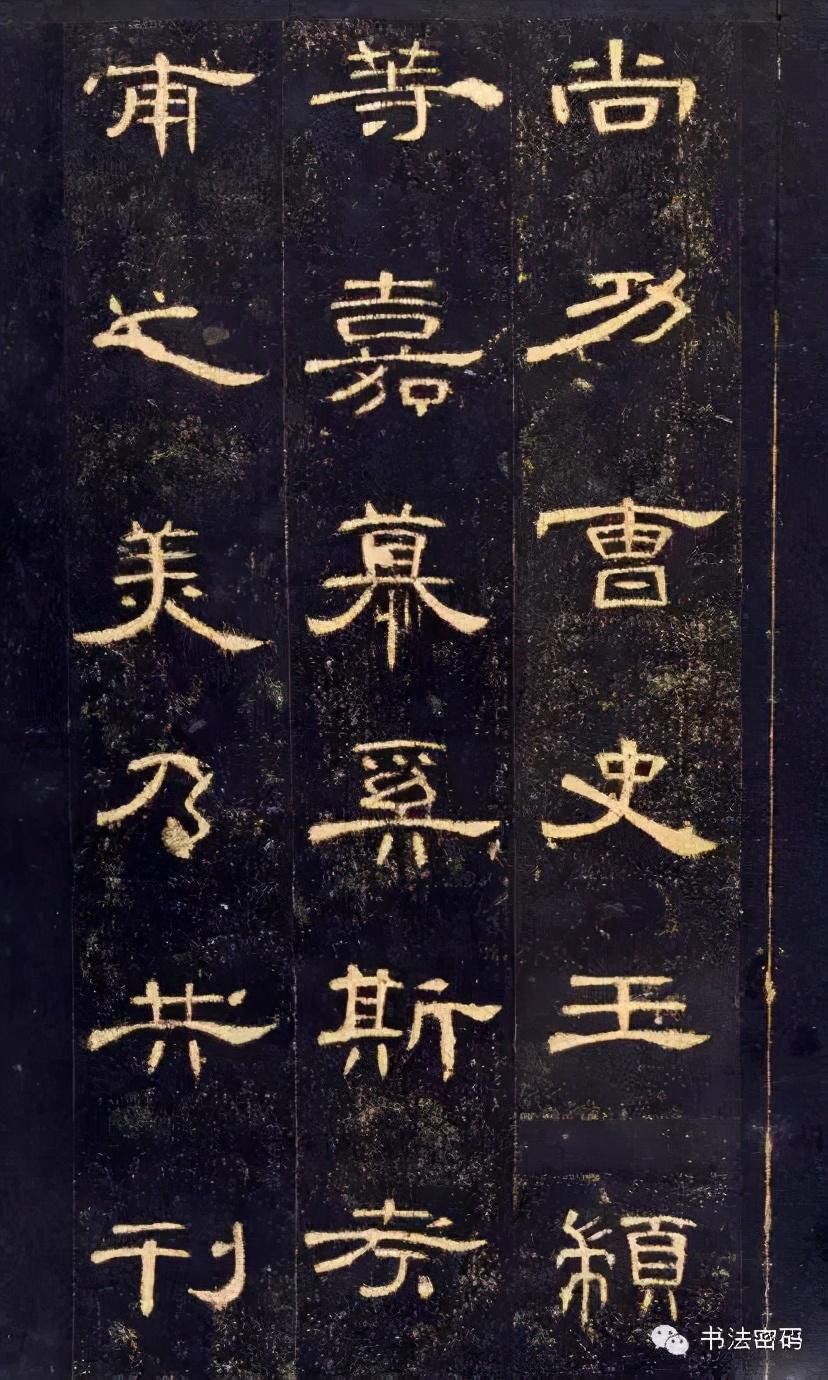 尚功曹史王顓
等嘉慕奚斯考
甫之美乃共刊
书法密码